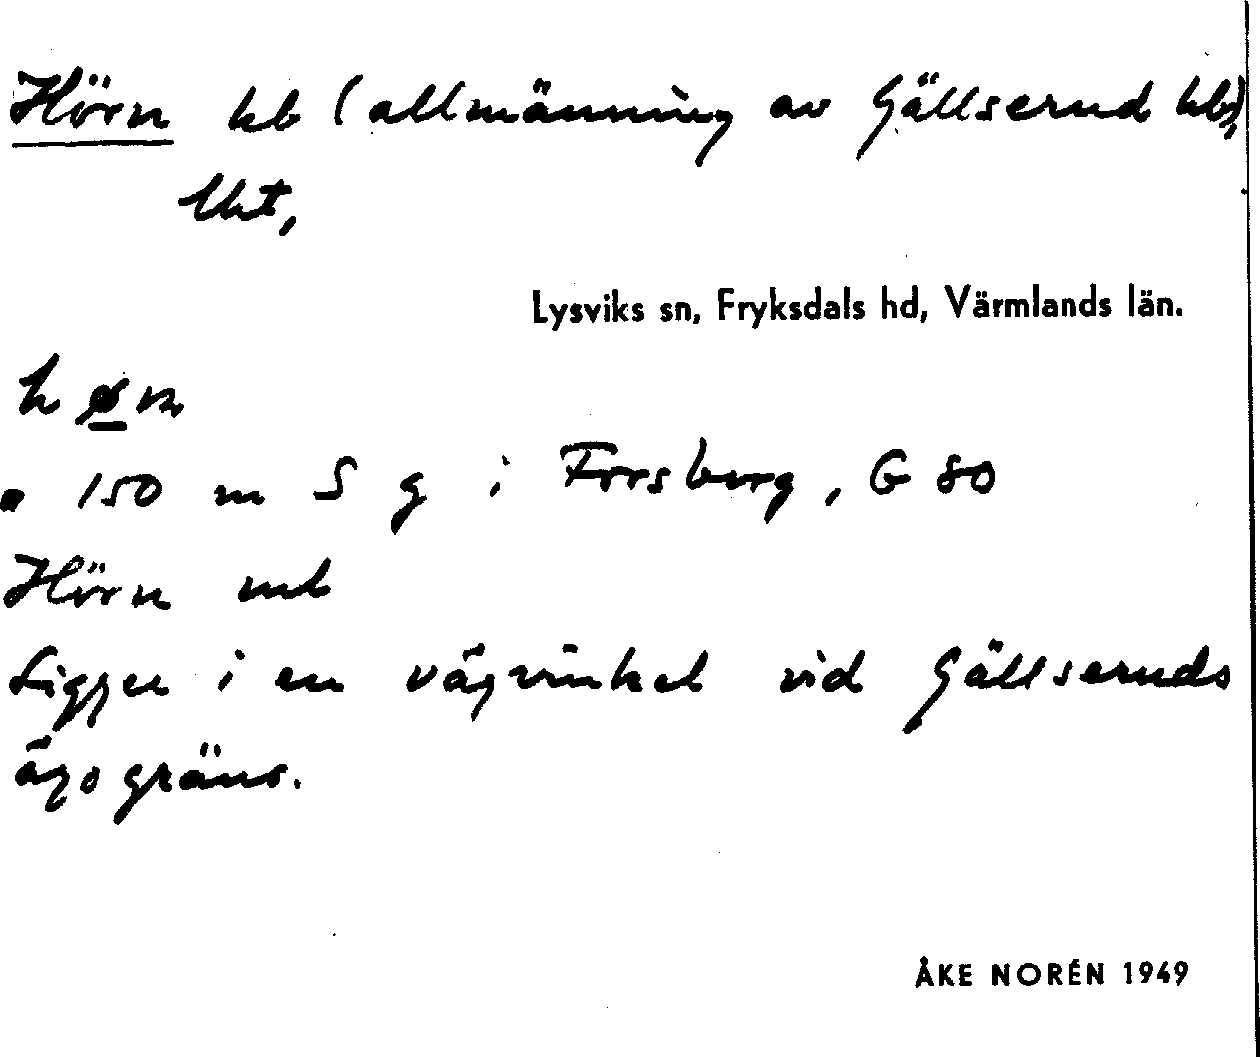 Hörn hb (allmänning av Gällserud hb),
lht,
Lysviks sn, Fryksdals hd, Värmlands län.
høn
150 m S g i Forsberg, G 80
Hörn
Ligger i en vägvinkel vid Gällseruds
ägogräns.
ÅKE NORÉN 1949